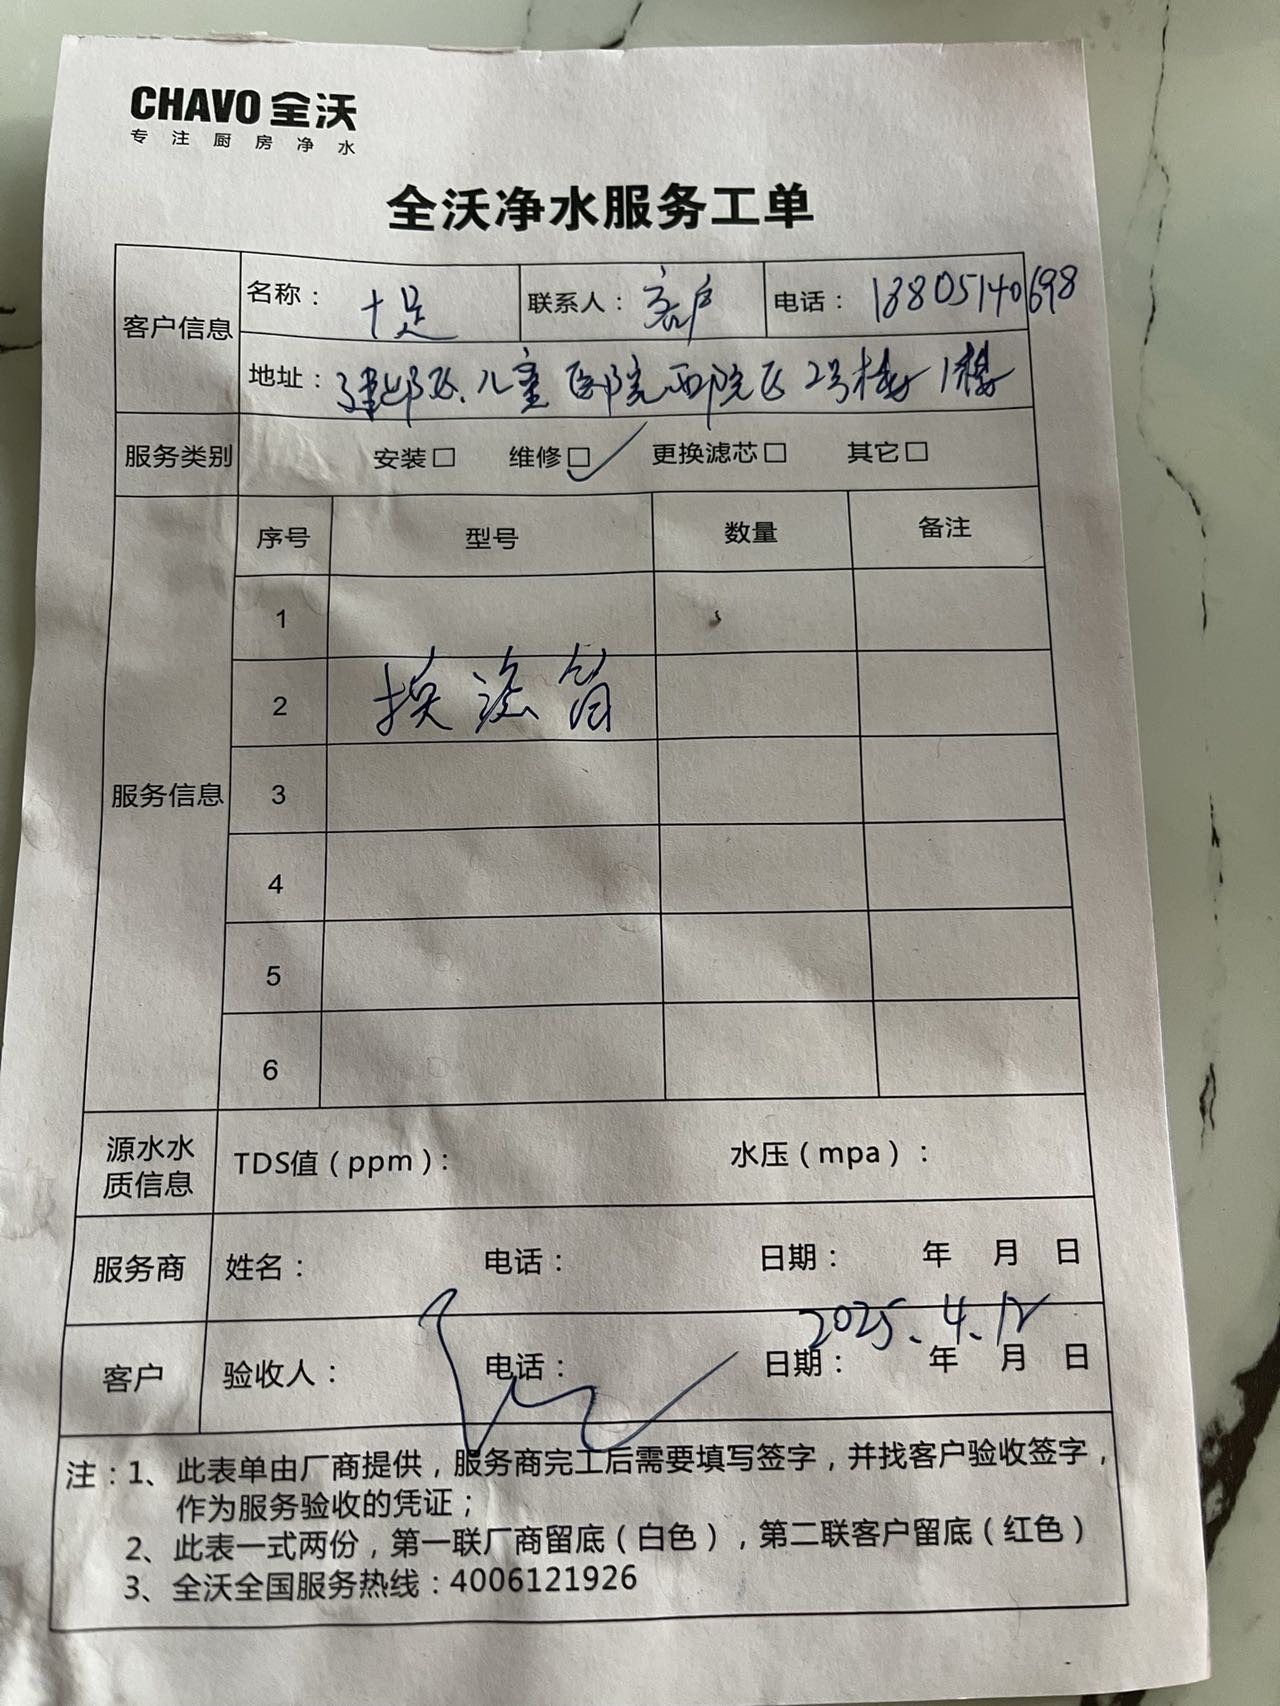 CHAVO 全沃
专注厨房净水
全沃净水服务工单
客户信息 名称： 十足 联系人： 客户 电话： 13805140698
地址： 建邺区.儿童医院西院区2号楼1楼
服务类别 安装□ 维修□✓ 更换滤芯□ 其它□
服务信息 序号 型号 数量 备注
1
2 换滤筒
3
4
5
6
源水水质信息 TDS值（ppm）： 水压（mpa）：
服务商 姓名： 电话： 日期： 年 月 日
2025.4.12
客户 验收人： 电话： 日期： 年 月 日
注：1、此表单由厂商提供，服务商完工后需要填写签字，并找客户验收签字，
作为服务验收的凭证；
2、此表一式两份，第一联厂商留底（白色），第二联客户留底（红色）
3、全沃全国服务热线：4006121926